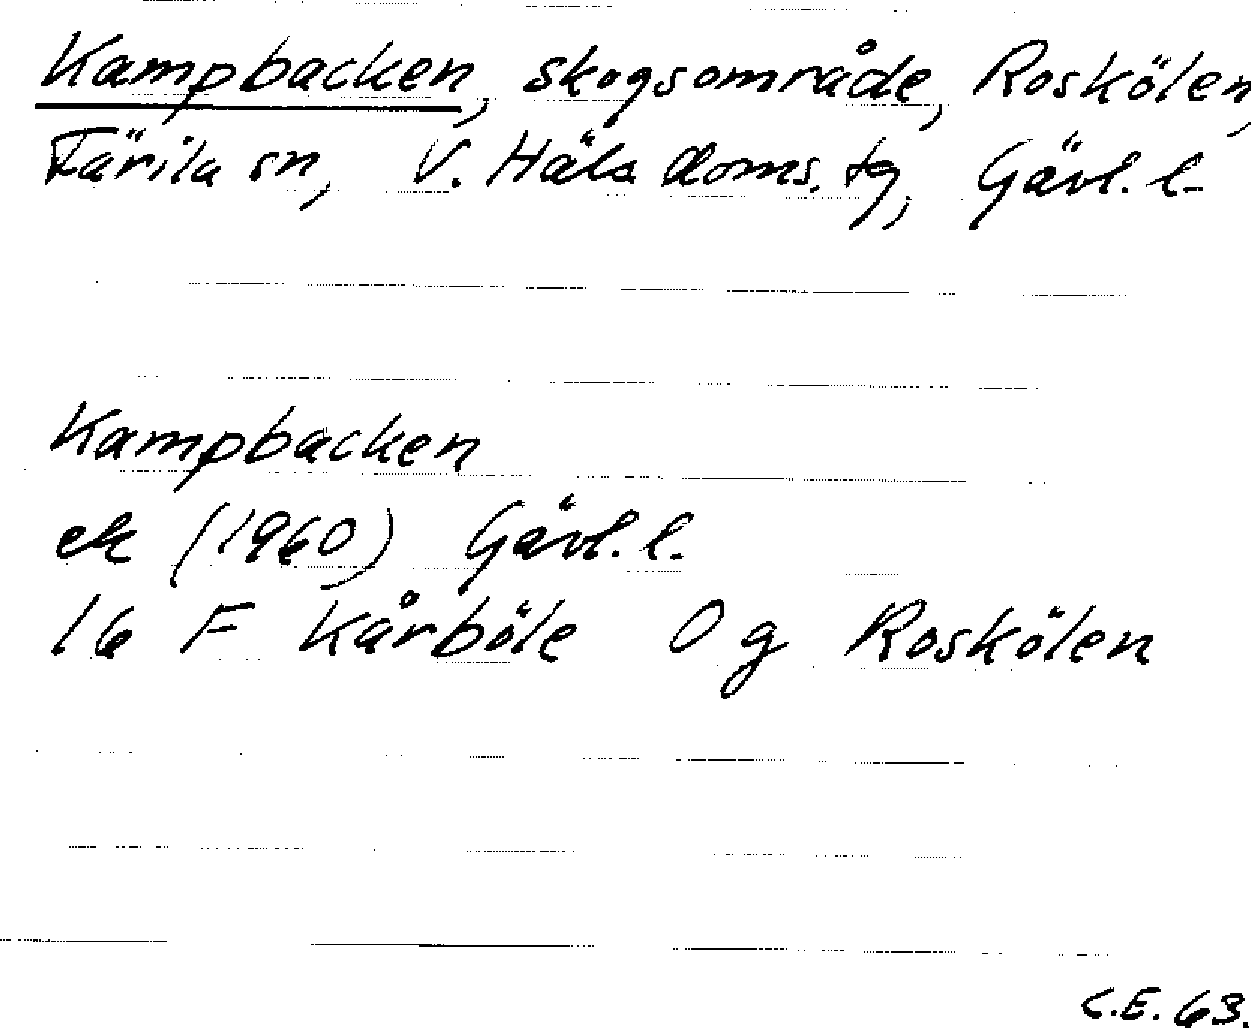 Kampbacken, skogsområde, Roskölen,
Färila sn, V. Häls doms. tg, Gävl. l.
Kampbacken
ek (1960) Gävl. l.
16 F Kårböle 0 g Roskölen
C.E. 63.